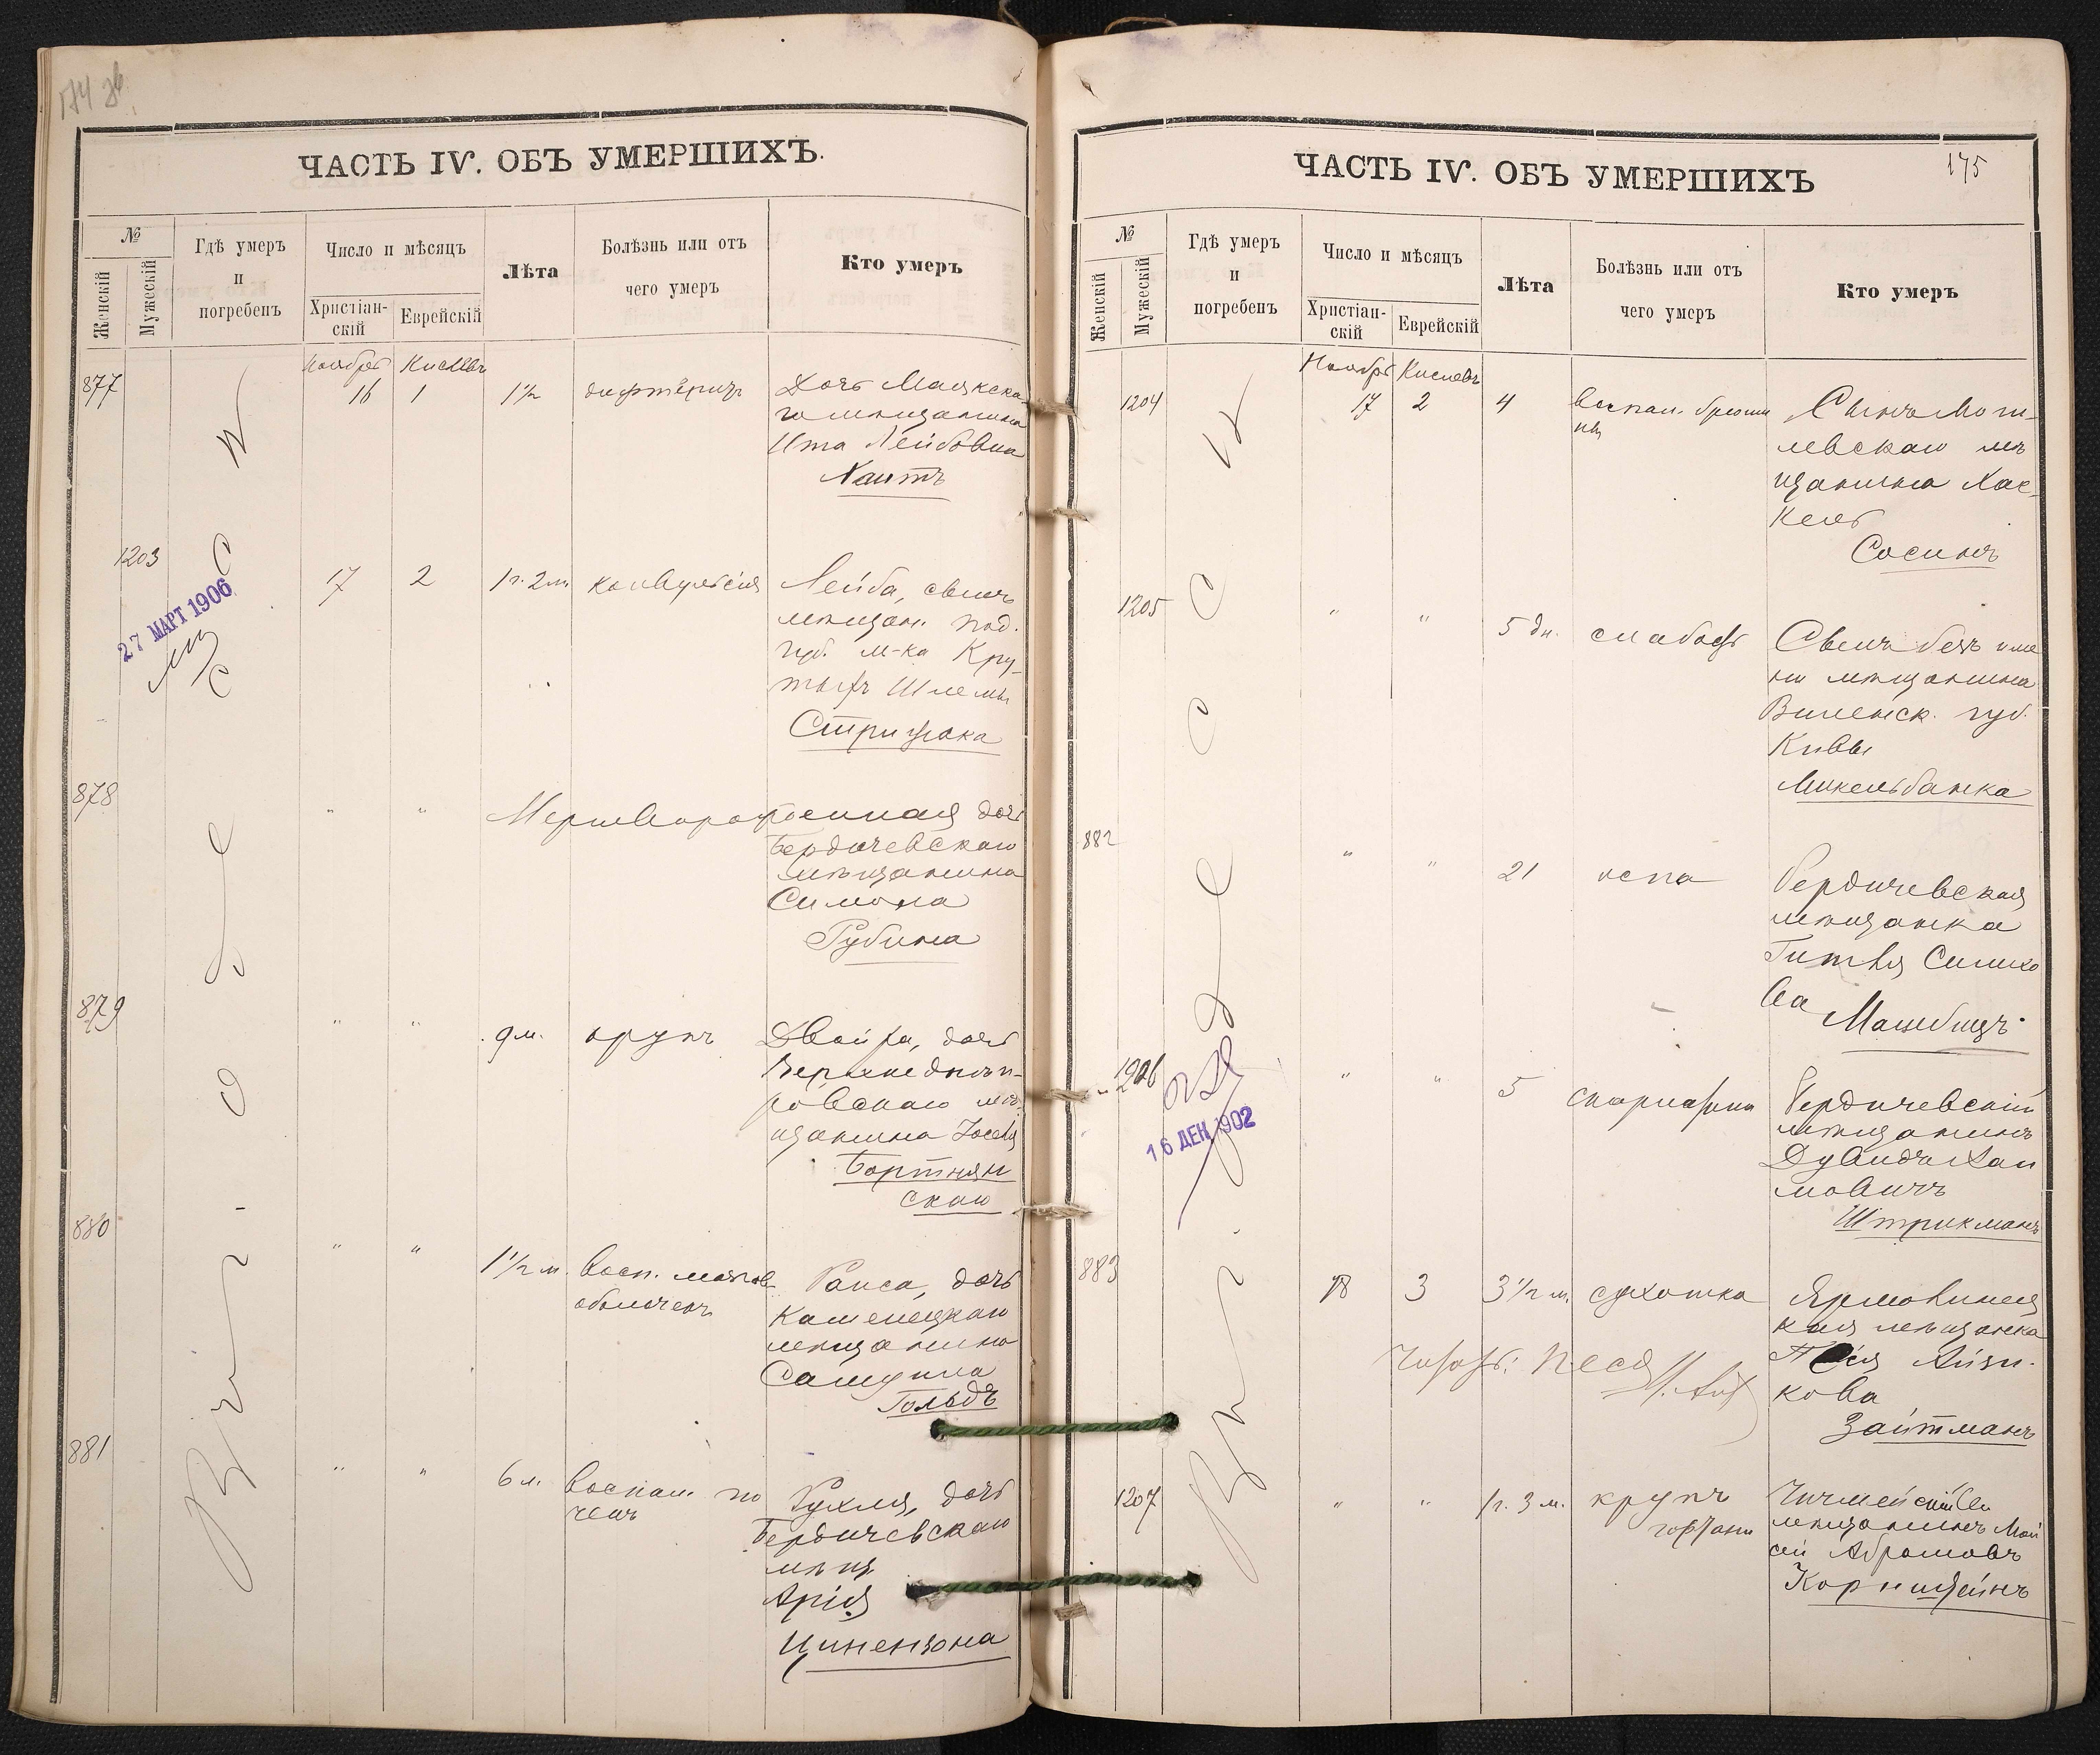 174 об.
ЧАСТЬ IV. ОБЪ УМЕРШИХЪ.
№
Женскій
Мужескій
Гдѣ умеръ
и
погребенъ
Число и мѣсяцъ
Христіан-
скій
Еврейскій
Лѣта
Болѣзнь или отъ
чего умеръ
Кто умеръ
Ноября Кислевъ
877 16 1 1½ дифтеритъ Дочь
го мѣщанина
Ита Лейбовна
Хаитъ
1203 17 2 1 г. 2 м. конвульсія Лейба, сынъ
мѣщан. Под.
губ. м-ка Кру-
тыхъ Шлемы
Стрижака
27 МАРТ 1906
878 " " Мертворожденная дочь
Бердичевскаго
мѣщанина
Симона
Рубина
879 " " 9 м. крупъ Двойра, дочь
Верхнеднѣп-
ровскаго мѣ-
щанина Іосефа
Бортнян
скаго
880 " " 1½ м. Восп. мозгов.
оболочекъ
Раиса, дочь
Каменецкаго
мѣщанина
Самуила
Гольдъ
881 " " 6 м. Воспал. по
чекъ
Рухля, дочь
Бердичевскаго
мѣщ.
Арія
Цинензона
Въ г. Одессѣ
175
ЧАСТЬ IV. ОБЪ УМЕРШИХЪ
№
Женскій
Мужескій
Гдѣ умеръ
и
погребенъ
Число и мѣсяцъ
Христіан-
скій
Еврейскій
Лѣта
Болѣзнь или отъ
чего умеръ
Кто умеръ
Ноября Кислевъ
1204 17 2 4 Воспал. брюши
ны
Сынъ Моги-
левскаго мѣ
щанина Хас-
кель
Сосинъ
1205 " " 5 дн. слабость Сынъ безъ име
ни мѣщанина
Виленск. губ.
Кивы
Микельбанка
882 " " 21 оспа Бердичевская
мѣщанка
Гитля Симхо
ва
1206 " " 5 скарлатина Бердичевскій
мѣщанинъ
Дувидъ Хаи
мовичъ
Штрикманъ
16 ДЕК 1902
883 18 3 3½ м. сухотка
кая мѣщанка
Айзи-
кова
Зайтманъ
Песя
1207 " " 1 г. 3 м. крупъ
гортани
мѣщанинъ Мои
сей Абрамовъ
Корнштейнъ